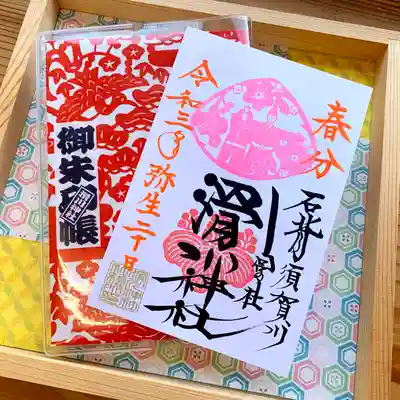 春分
須賀川
滑川神社
令和三年弥生二十日
御朱印帳